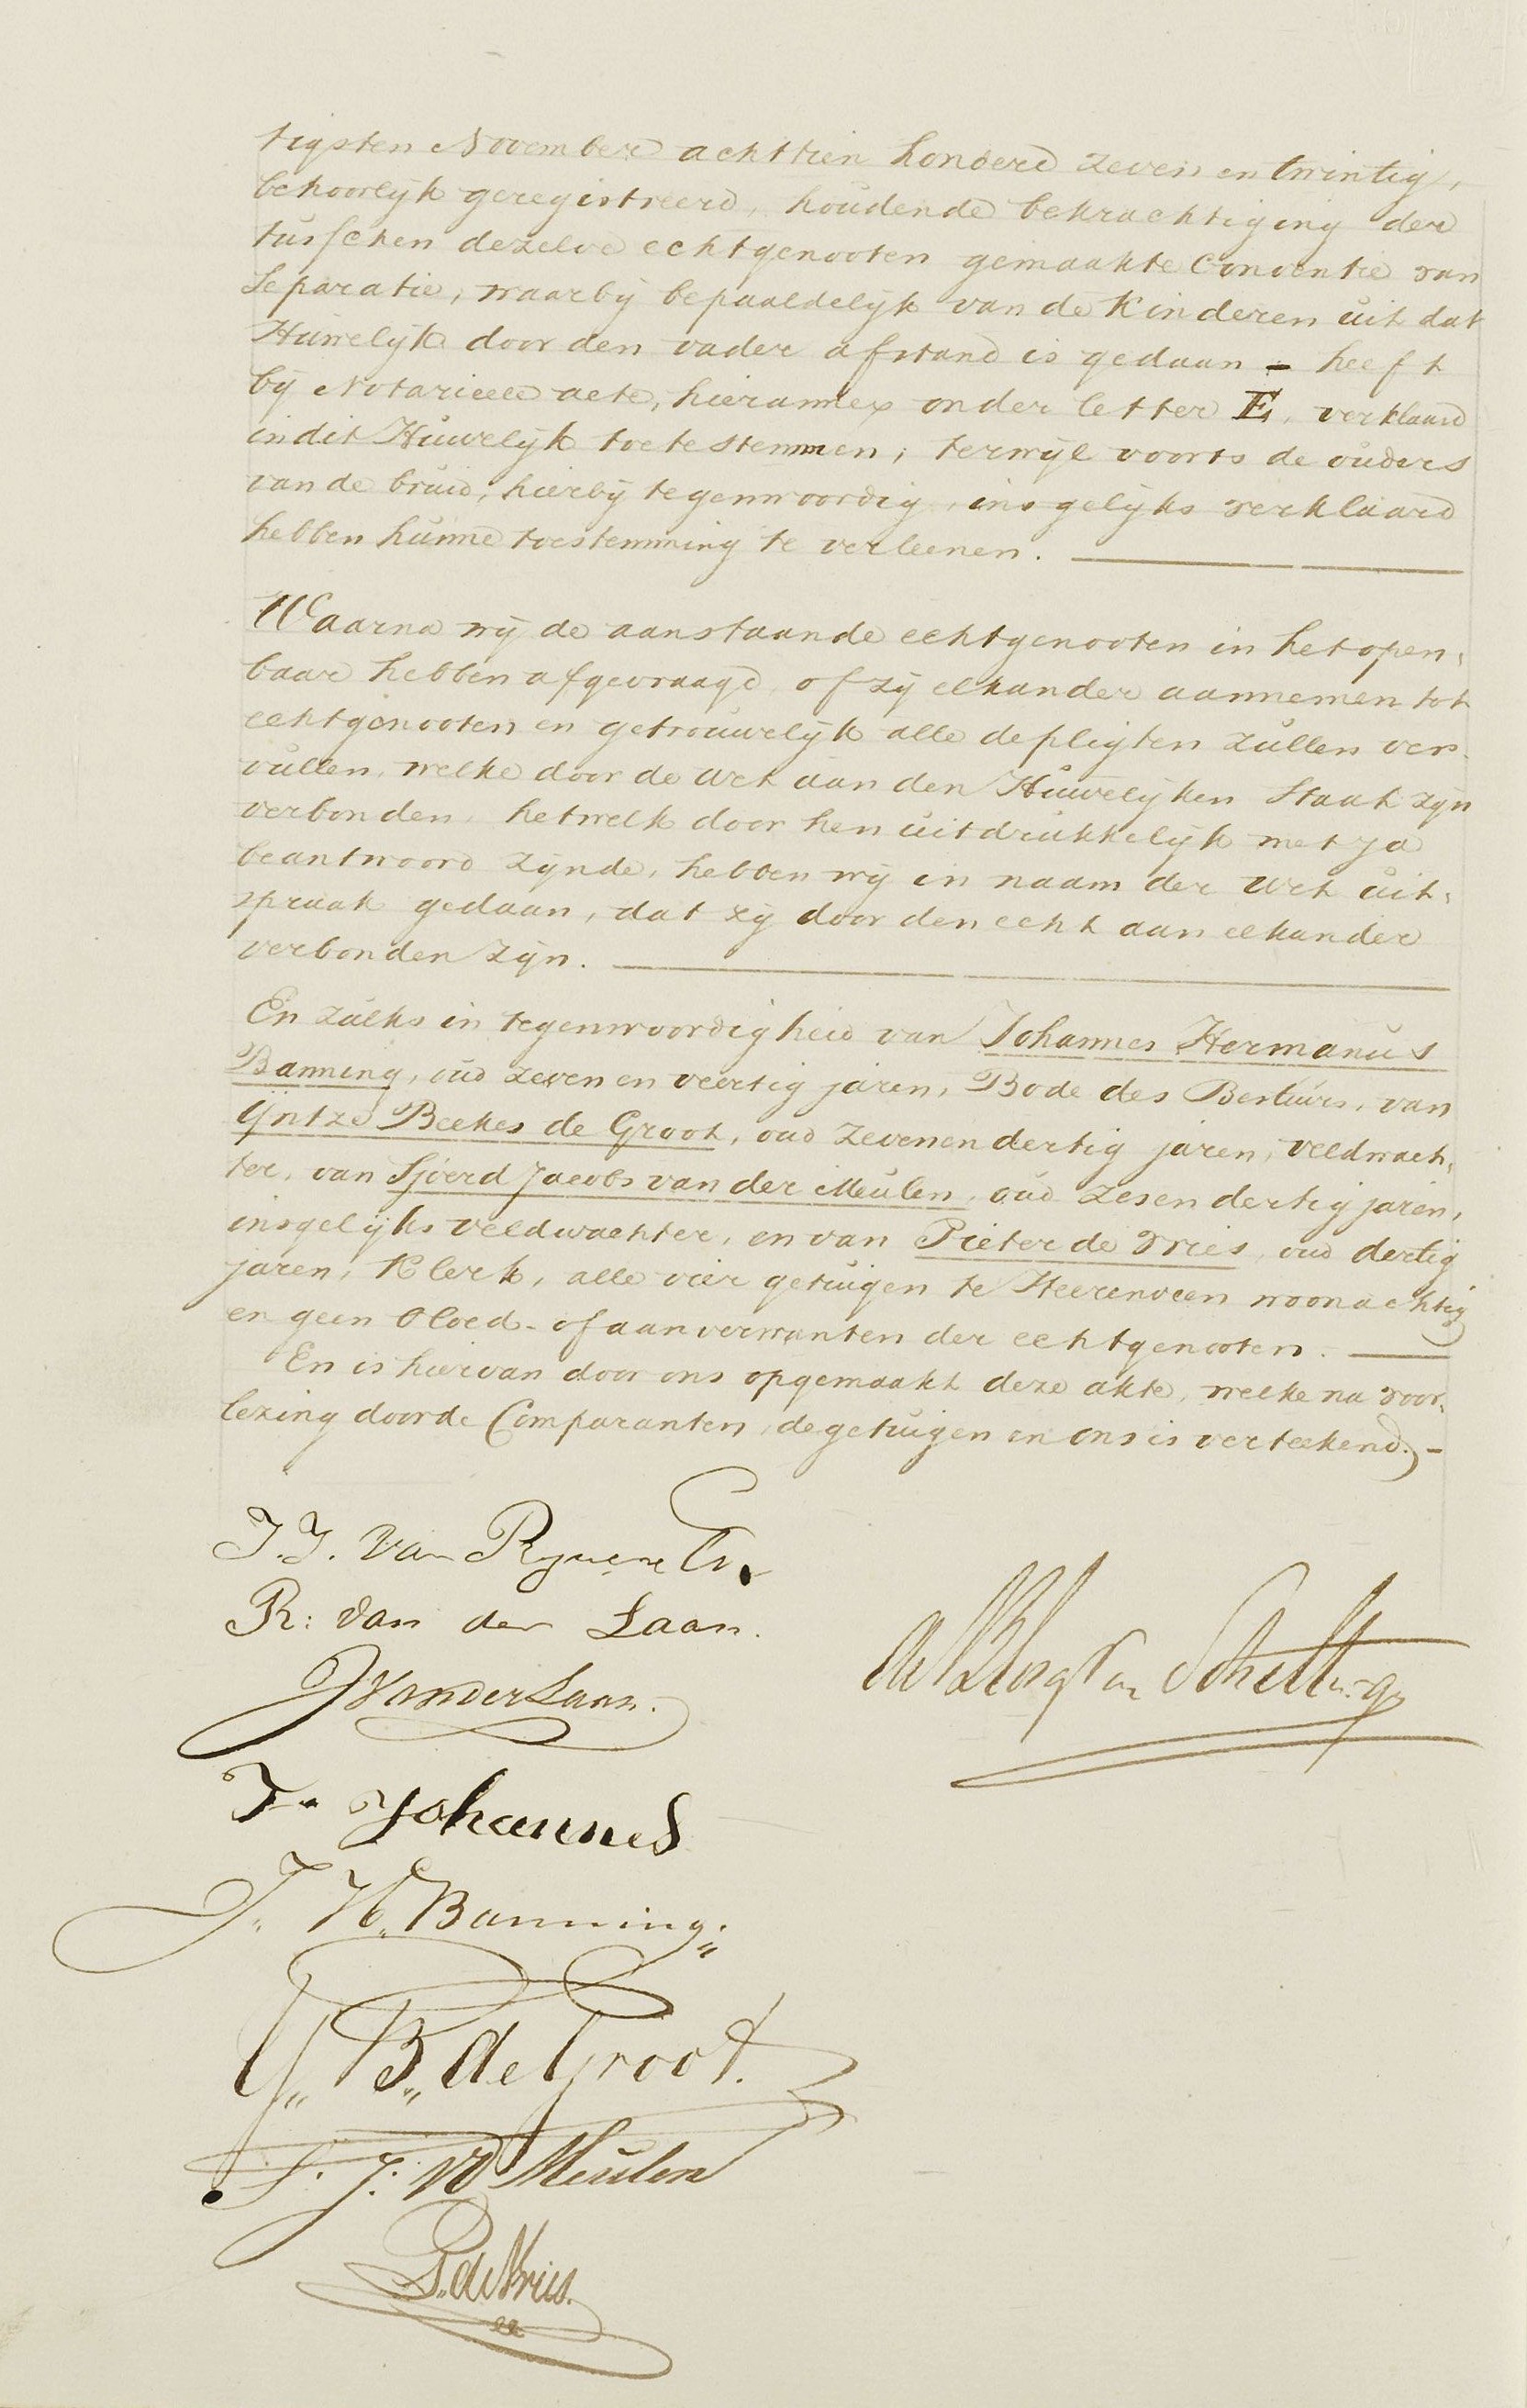 tigsten November achttien honderd zeven en twintig,
behoorlijk geregistreerd, houdende bekrachtiging der
tusschen dezelve echtgenooten gemaakte Conventie van
Separatie, waarbij bepaaldelijk van de Kinderen uit dat
Huwelijk door den vader afstand is gedaan - heeft
bij Notarieele acte, hierannex onder letter E, verklaard
in dit Huwelijk toetestemmen; terwijl voorts de ouders
van de bruid, hierbij tegenwoordig, insgelijks verklaard
hebben hunne toestemming te verleenen.
Waarna wij de aanstaande echtgenooten in het open,
baar hebben afgevraagd, of zij elkander aannemen tot
echtgenooten en getrouwelijk alle de pligten zullen ver-
vullen, welke door de wet aan den Huwelijken Staat zijn
verbonden, hetwelk door hen uitdrukkelijk met Ja
beantwoord zijnde, hebben wij in naam der wet uit,
spraak gedaan, dat zij door den echt aan elkander
verbonden zijn.
En zulks in tegenwoordigheid van Johannes Hermanus
Banning, oud zeven en veertig jaren, Bode des Bestuurs, van
IJntzo Beekes de Groot, oud zeven en dertig jaren, veldwach,
ter, van Sjoerd Jacobs van der Meulen, oud zes en dertig jaren,
insgelijks veldwachter, en van Pieter de Vries, oud dertig
jaren, Klerk, alle vier getuigen te Heerenveen woonachtig
en geen bloed- of aanverwanten der echtgenooten.
En is hiervan door ons opgemaakt deze akte, welke na voor,
lezing door de Comparanten, de getuigen en ons is verteekend. -
J. J. Van
R: van der Laan.
J van der Laan.
T. Johannes
J. H. Banning
IJ. B. de Groot.
S. J. vd Meulen
P. de Vries.